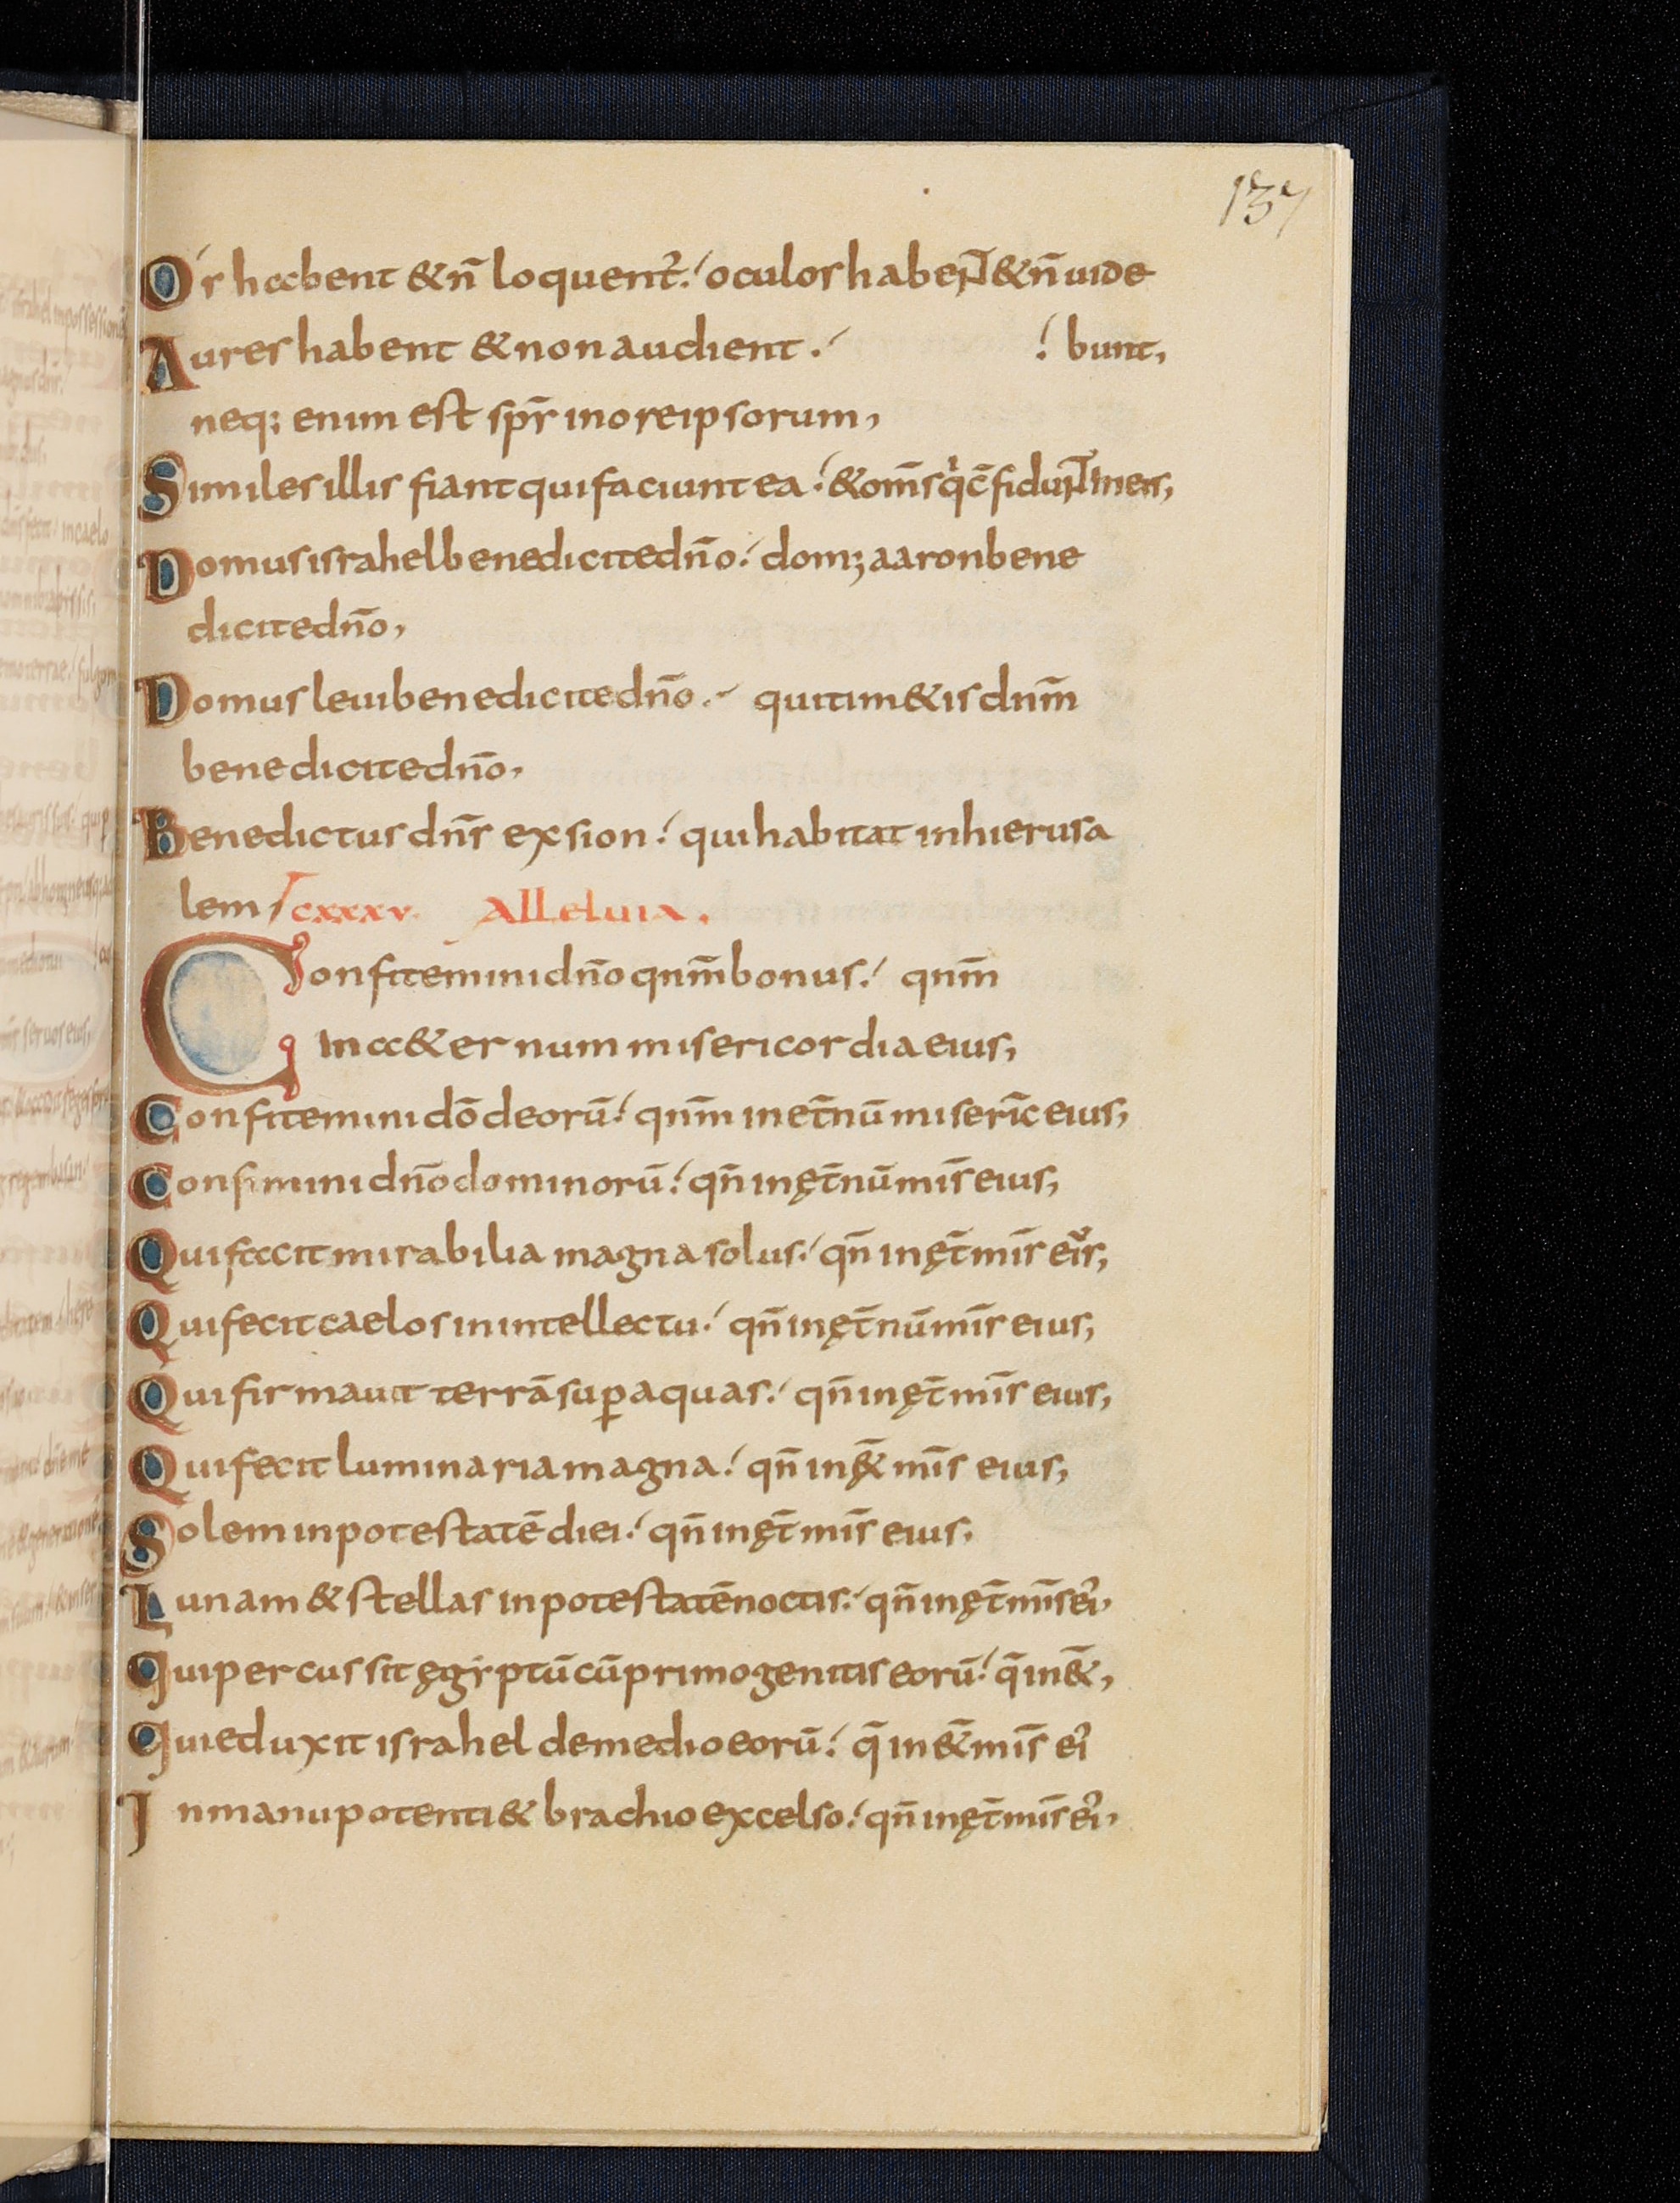 137
Os habent & n̄ loquent᷑ ./ oculos habeNT & n̄ uide
Aures habent & non audient ./ ! bunt,
neq; enim est sp̄s in ore ipsorum,
Similes illis fiant qui faciunt ea ./ & om̄s q̇ c̄fiduNT in eis,
Domus israhel benedicite dn̄o ./ dom; aaron bene
dicite dn̄o,
Domus leui benedicite dn̄o ./ qui tim&is dnm̄
benedicite dn̄o,
Benedictus dn̄s ex sion ./ qui habitat in hierusa
lem / cxxxv. Alleluia.
Confitemini dn̄o qnm̄ bonus ./ qnm̄
in &ernum misericordia eius,
Confitemini dō deorū ./ qnm̄ in et̄nū miseric̄ eius,
Confimini dn̄o dominorū ./ qn̄ in ęt̄nū mis̄ eius,
Qui facit mirabilia magna solus ./ qn̄ in ęt̄ mis̄ eis,
Qui fecit caelos in intellectu ./ qn̄ in ęt̄nū mis̄ eius,
Qui firmauit terrā sup̄ aquas ./ qn̄ in ęt̄ mis̄ eius,
Qui fecit luminaria magna ./ qn̄ in &̄ mis̄ eius,
Solem in potestatē diei ./ qn̄ in ęt̄ mis̄ eius,
Lunam & stellas in potestatē noctis ./ qn̄ in ęt̄ mis̄ ei᷒,
qui percussit ęgyptū cū primogenitis eorū ./ q̄ in &̄,
qui eduxit israhel de medio eorū ./ q̄ in &̄ mis̄ ei᷒
In manu potenti & brachio excelso ./ qn̄ in ęt̄ mis̄ ei᷒,